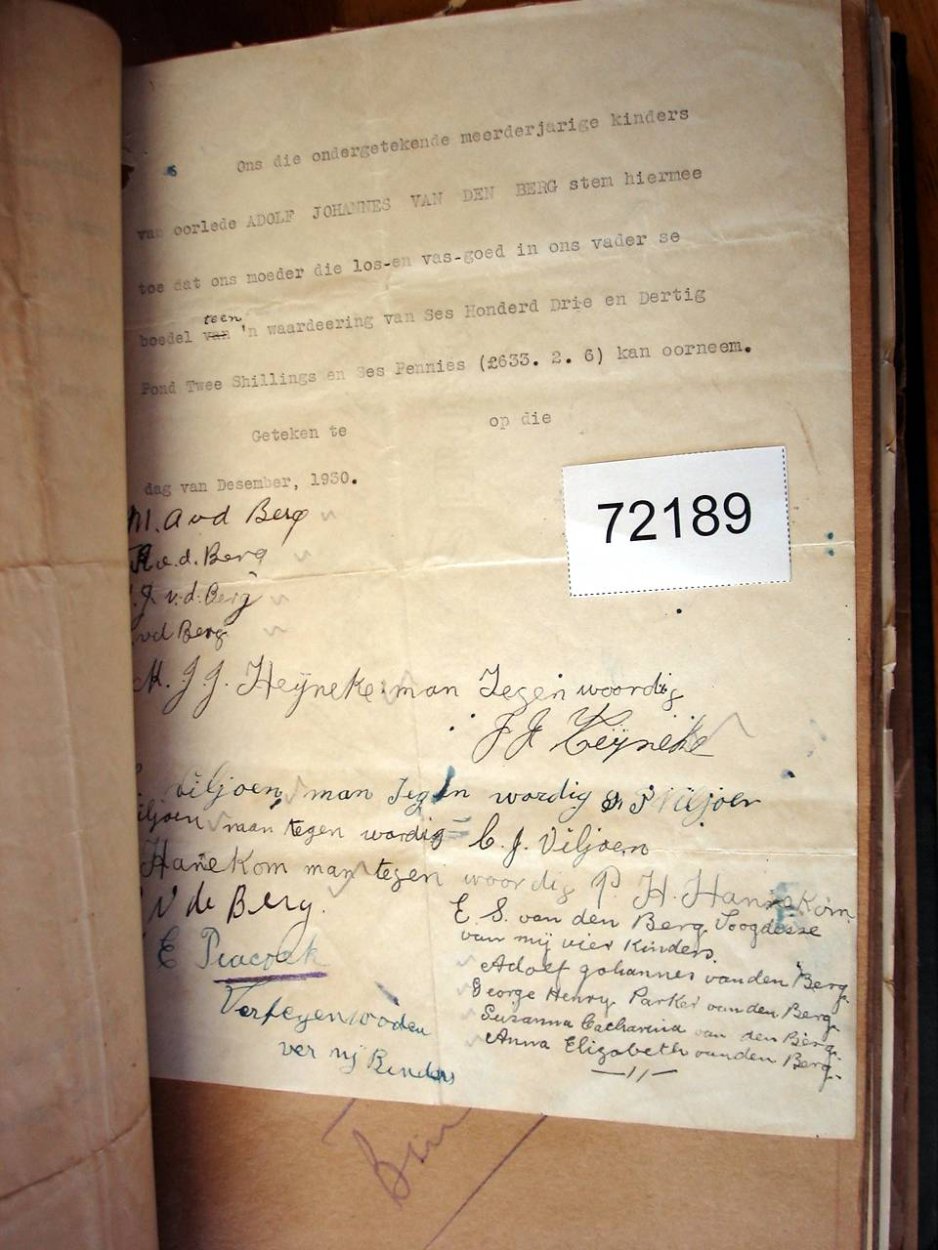 Ons die ondergetekende meerderjarige kinders
van oorlede ADOLF JOHANNES VAN DEN BERG stem hiermee
toe dat ons moeder die los-en vas-goed in ons vader se
teen
boedel van 'n waardeering van Ses Honderd Drie en Dertig
Pond Twee Shillings en Ses Pennies (£633. 2. 6) kan oorneem.
Geteken te op die
dag van Desember, 1930.
72189
M. A vd Berg
v.d. Berg
J v.d. Berg
vd Berg
M. J J. Heÿneke man Tegen woordig
J J Heÿneke
Viljoen man Tegen wordig Viljoen
iljoen man tegen wordig = C. J. Viljoen
Hanekom man tegen woordig P H. Hannekom
V de Berg.
E. S. van den Berg. Voogdesse
van mij vier Kinders.
E Peacock
Adolf Johannes van den Berg.
George Henry Parker van den Berg.
Susanna Catharina van den Berg.
Anna Elizabeth van den Berg.
—11—